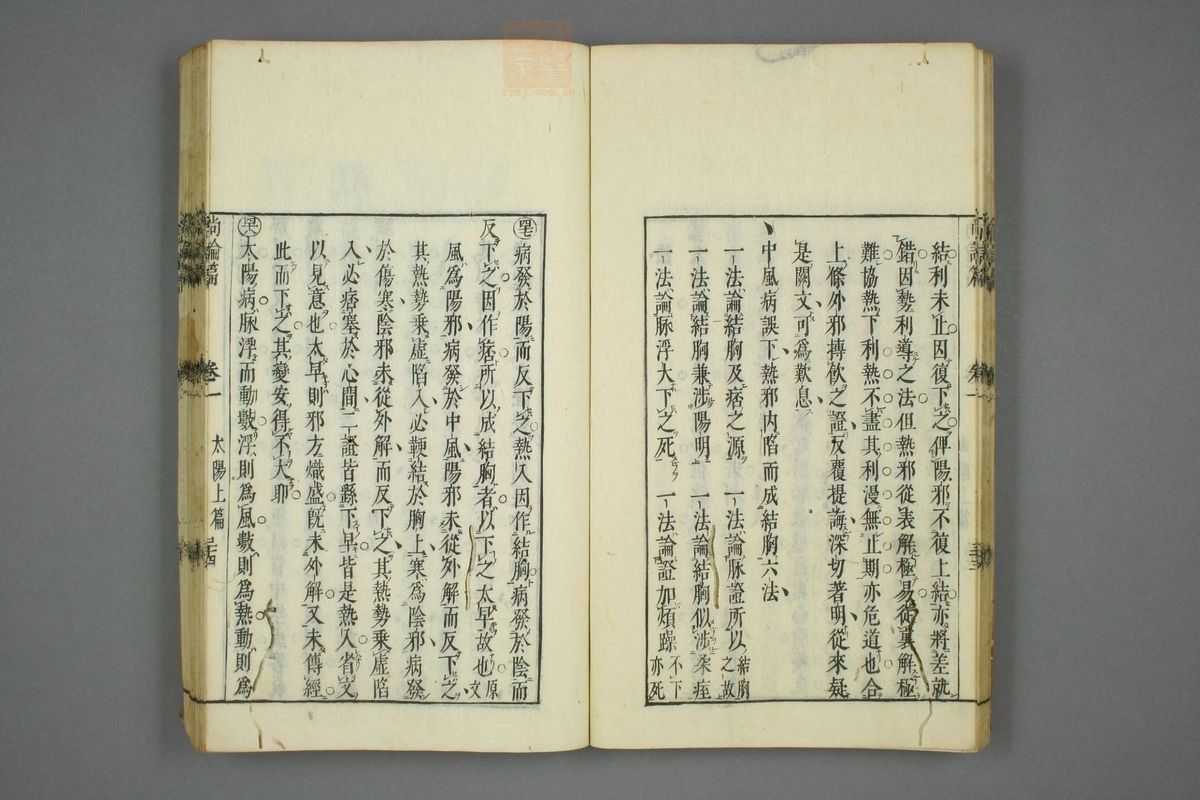 結利未止因復下之俾陽邪不復上結亦將差就
錯因勢利導之法但熱邪從表解極易從裏解極
難協熱下利熱不盡其利漫無止期亦危道也合
上條外邪搏飲之證反覆提誨深切著明從來疑
是闕文可爲歎息
中風病誤下熱邪內陷而成結胸六法
一法論結胸及痞之源 一法論脉證所以結胸之故
一法論結胸兼涉陽明 一法論結胸似涉柔痓
一法論脉浮大下之死 一法論證加煩躁不下亦死
病發於陽而反下之熱入因作結胸病發於陰而
反下之因作痞所以成結胸者以下之太早故也原文
風爲陽邪病發於中風陽邪未從外解而反下之
其熱勢乘虛陷入必鞕結於胸上寒爲陰邪病發
於傷寒陰邪未從外解而反下之其熱勢乘虛陷
入必痞塞於心間二證皆繇下早皆是熱入省文
以見意也太早則邪方熾盛旣未外解又未傳經
此而下之其變安得不大耶
太陽病脉浮而動數浮則爲風數則爲熱動則爲
尚論篇 卷一 太陽上篇